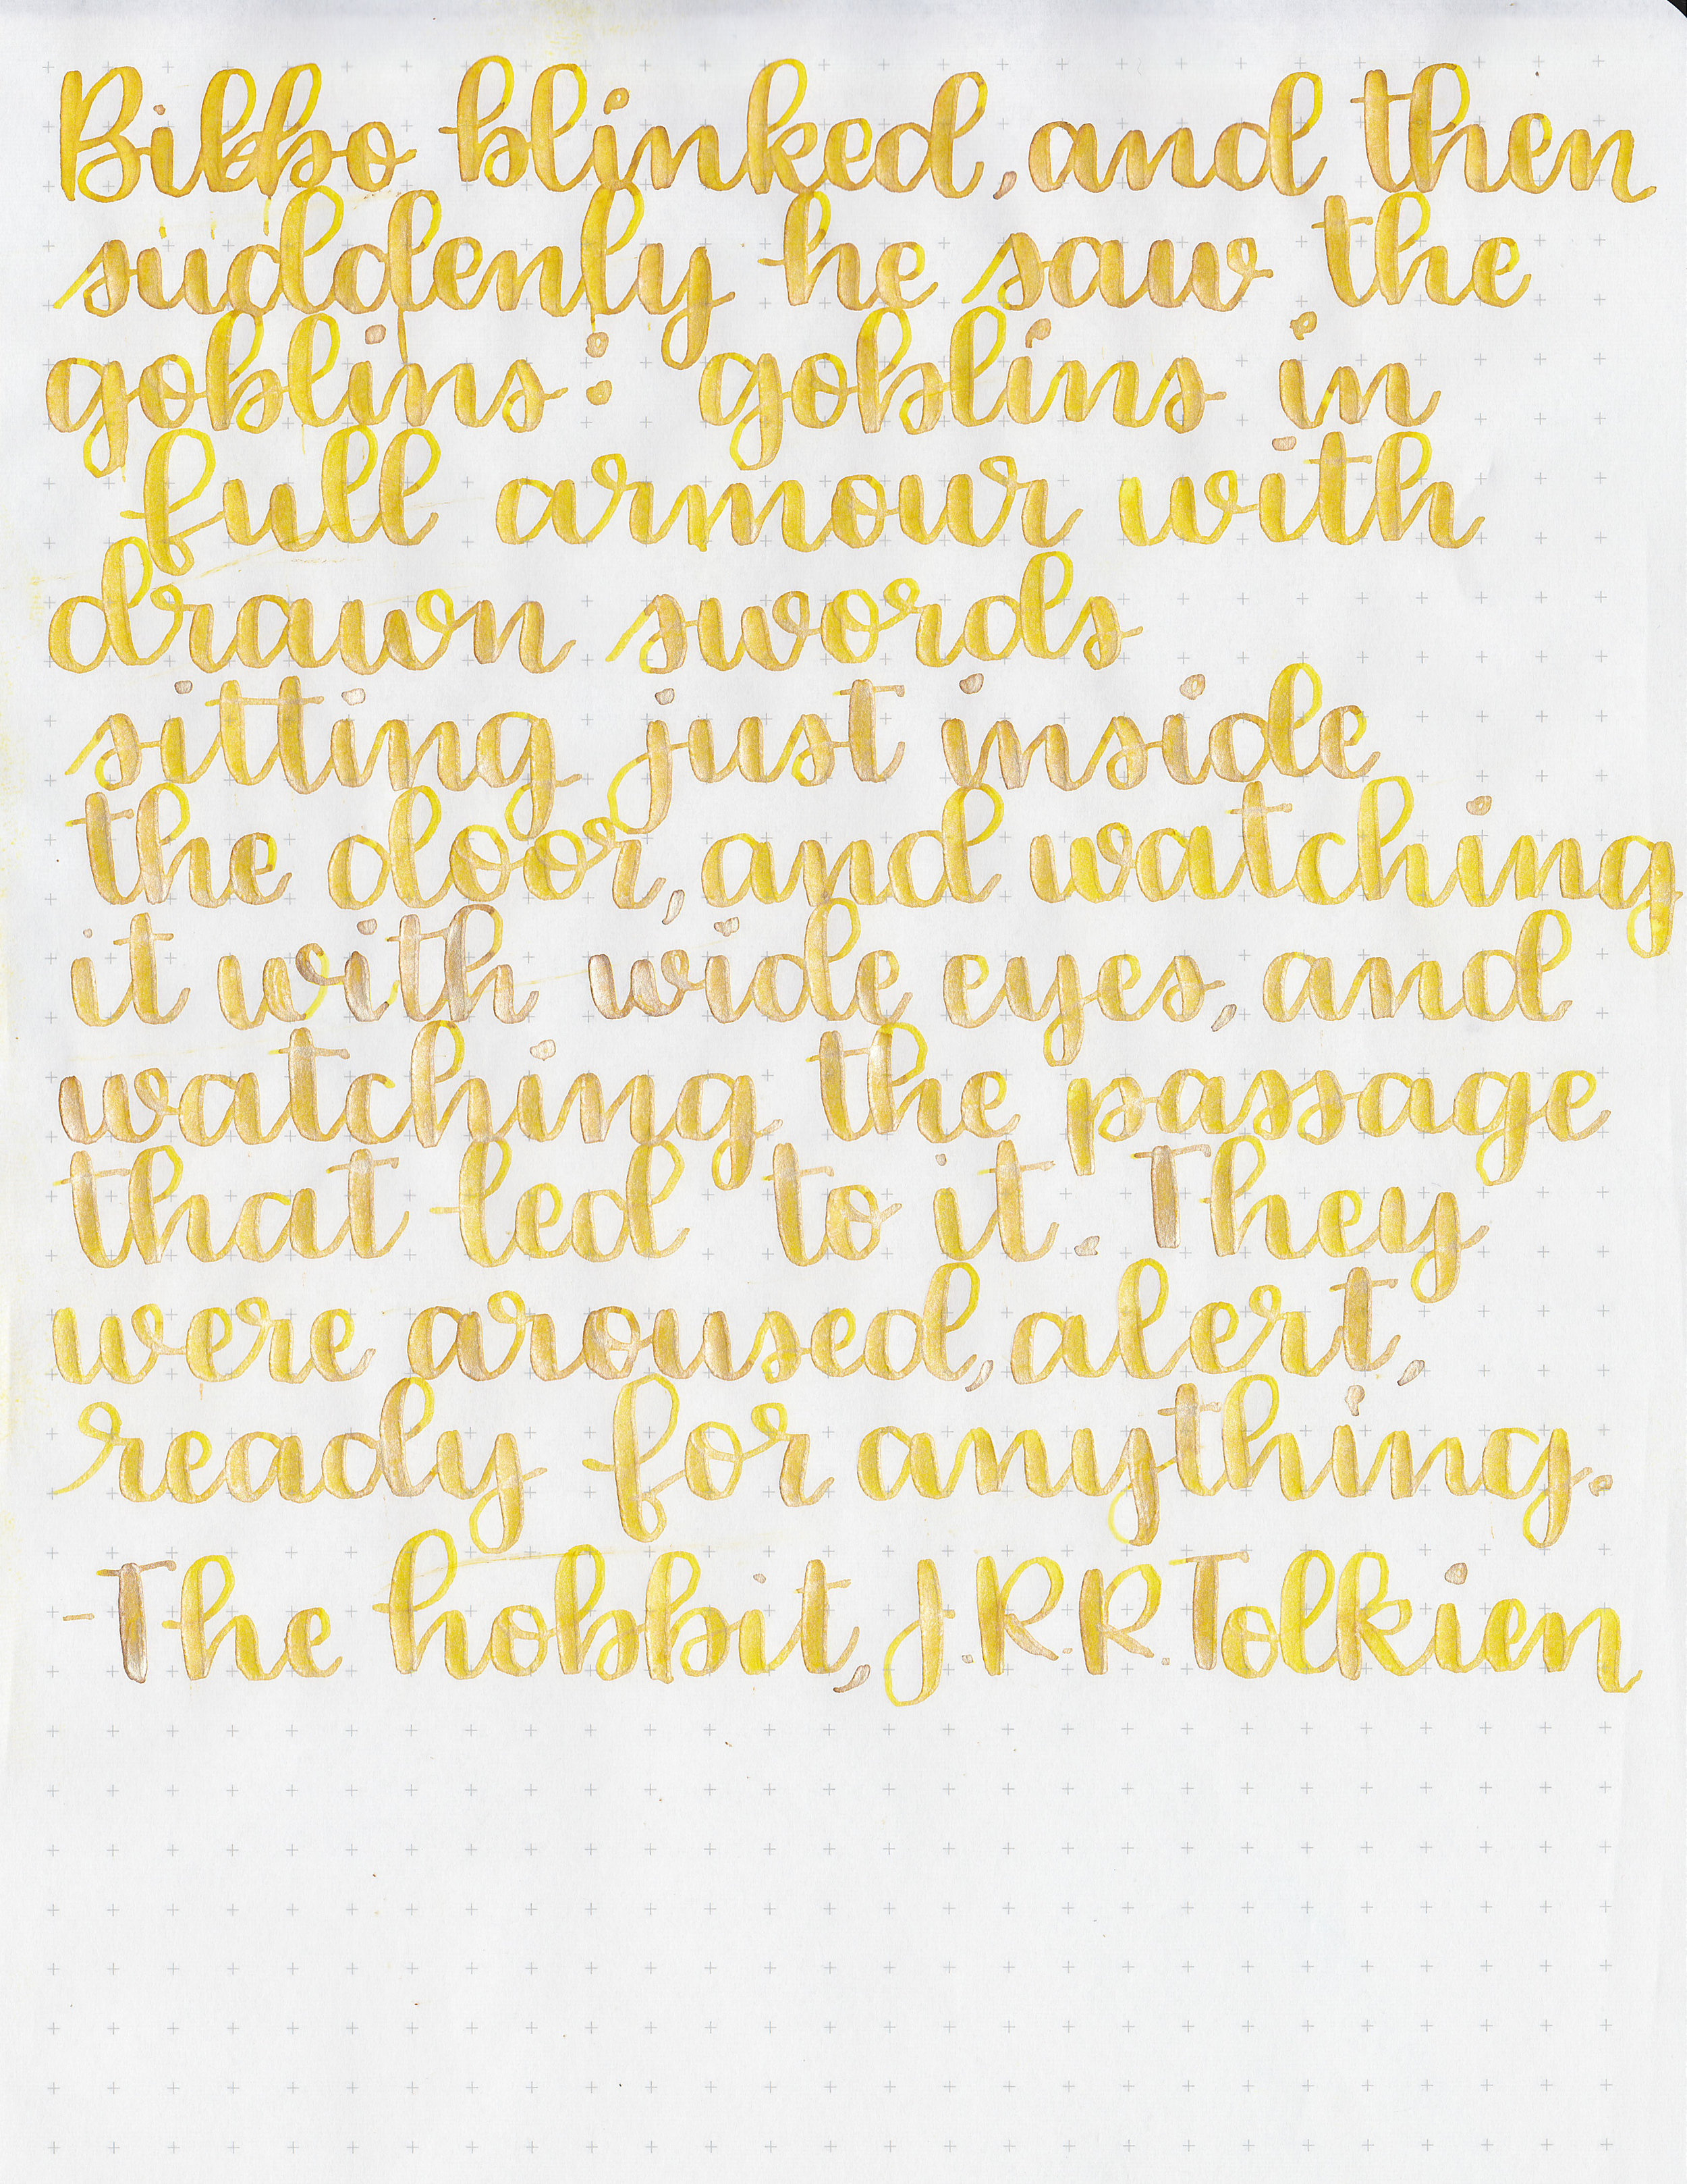 Bibbo blinked, and then
suddenly he saw the
goblins: goblins in
full armour with
drawn swords
sitting just inside
the door, and watching
it with wide eyes, and
watching the passage
that led to it. They
were aroused, alert,
ready for anything.
-The hobbit, J.R.R.Tolkien